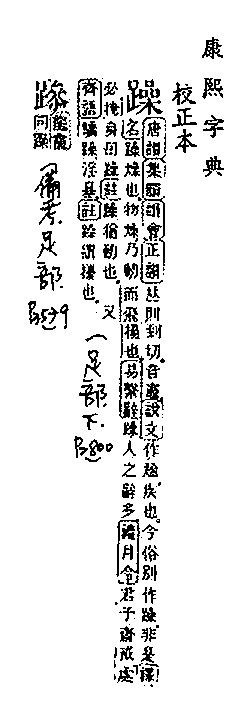 康熙字典
校正本
躁 唐韻集韻韻會正韻𠀤則到切音竈說文作趮疾也今俗別作躁非是釋
名躁燥也物燥乃動而飛揚也易繫辭躁人之辭多禮月令君子齋戒處
必掩身毋躁註躁猶動也 又
齊語驕躁淫暴註躁擾也
(足部下.
P.800
同躁
(備考.足部.
P.1579